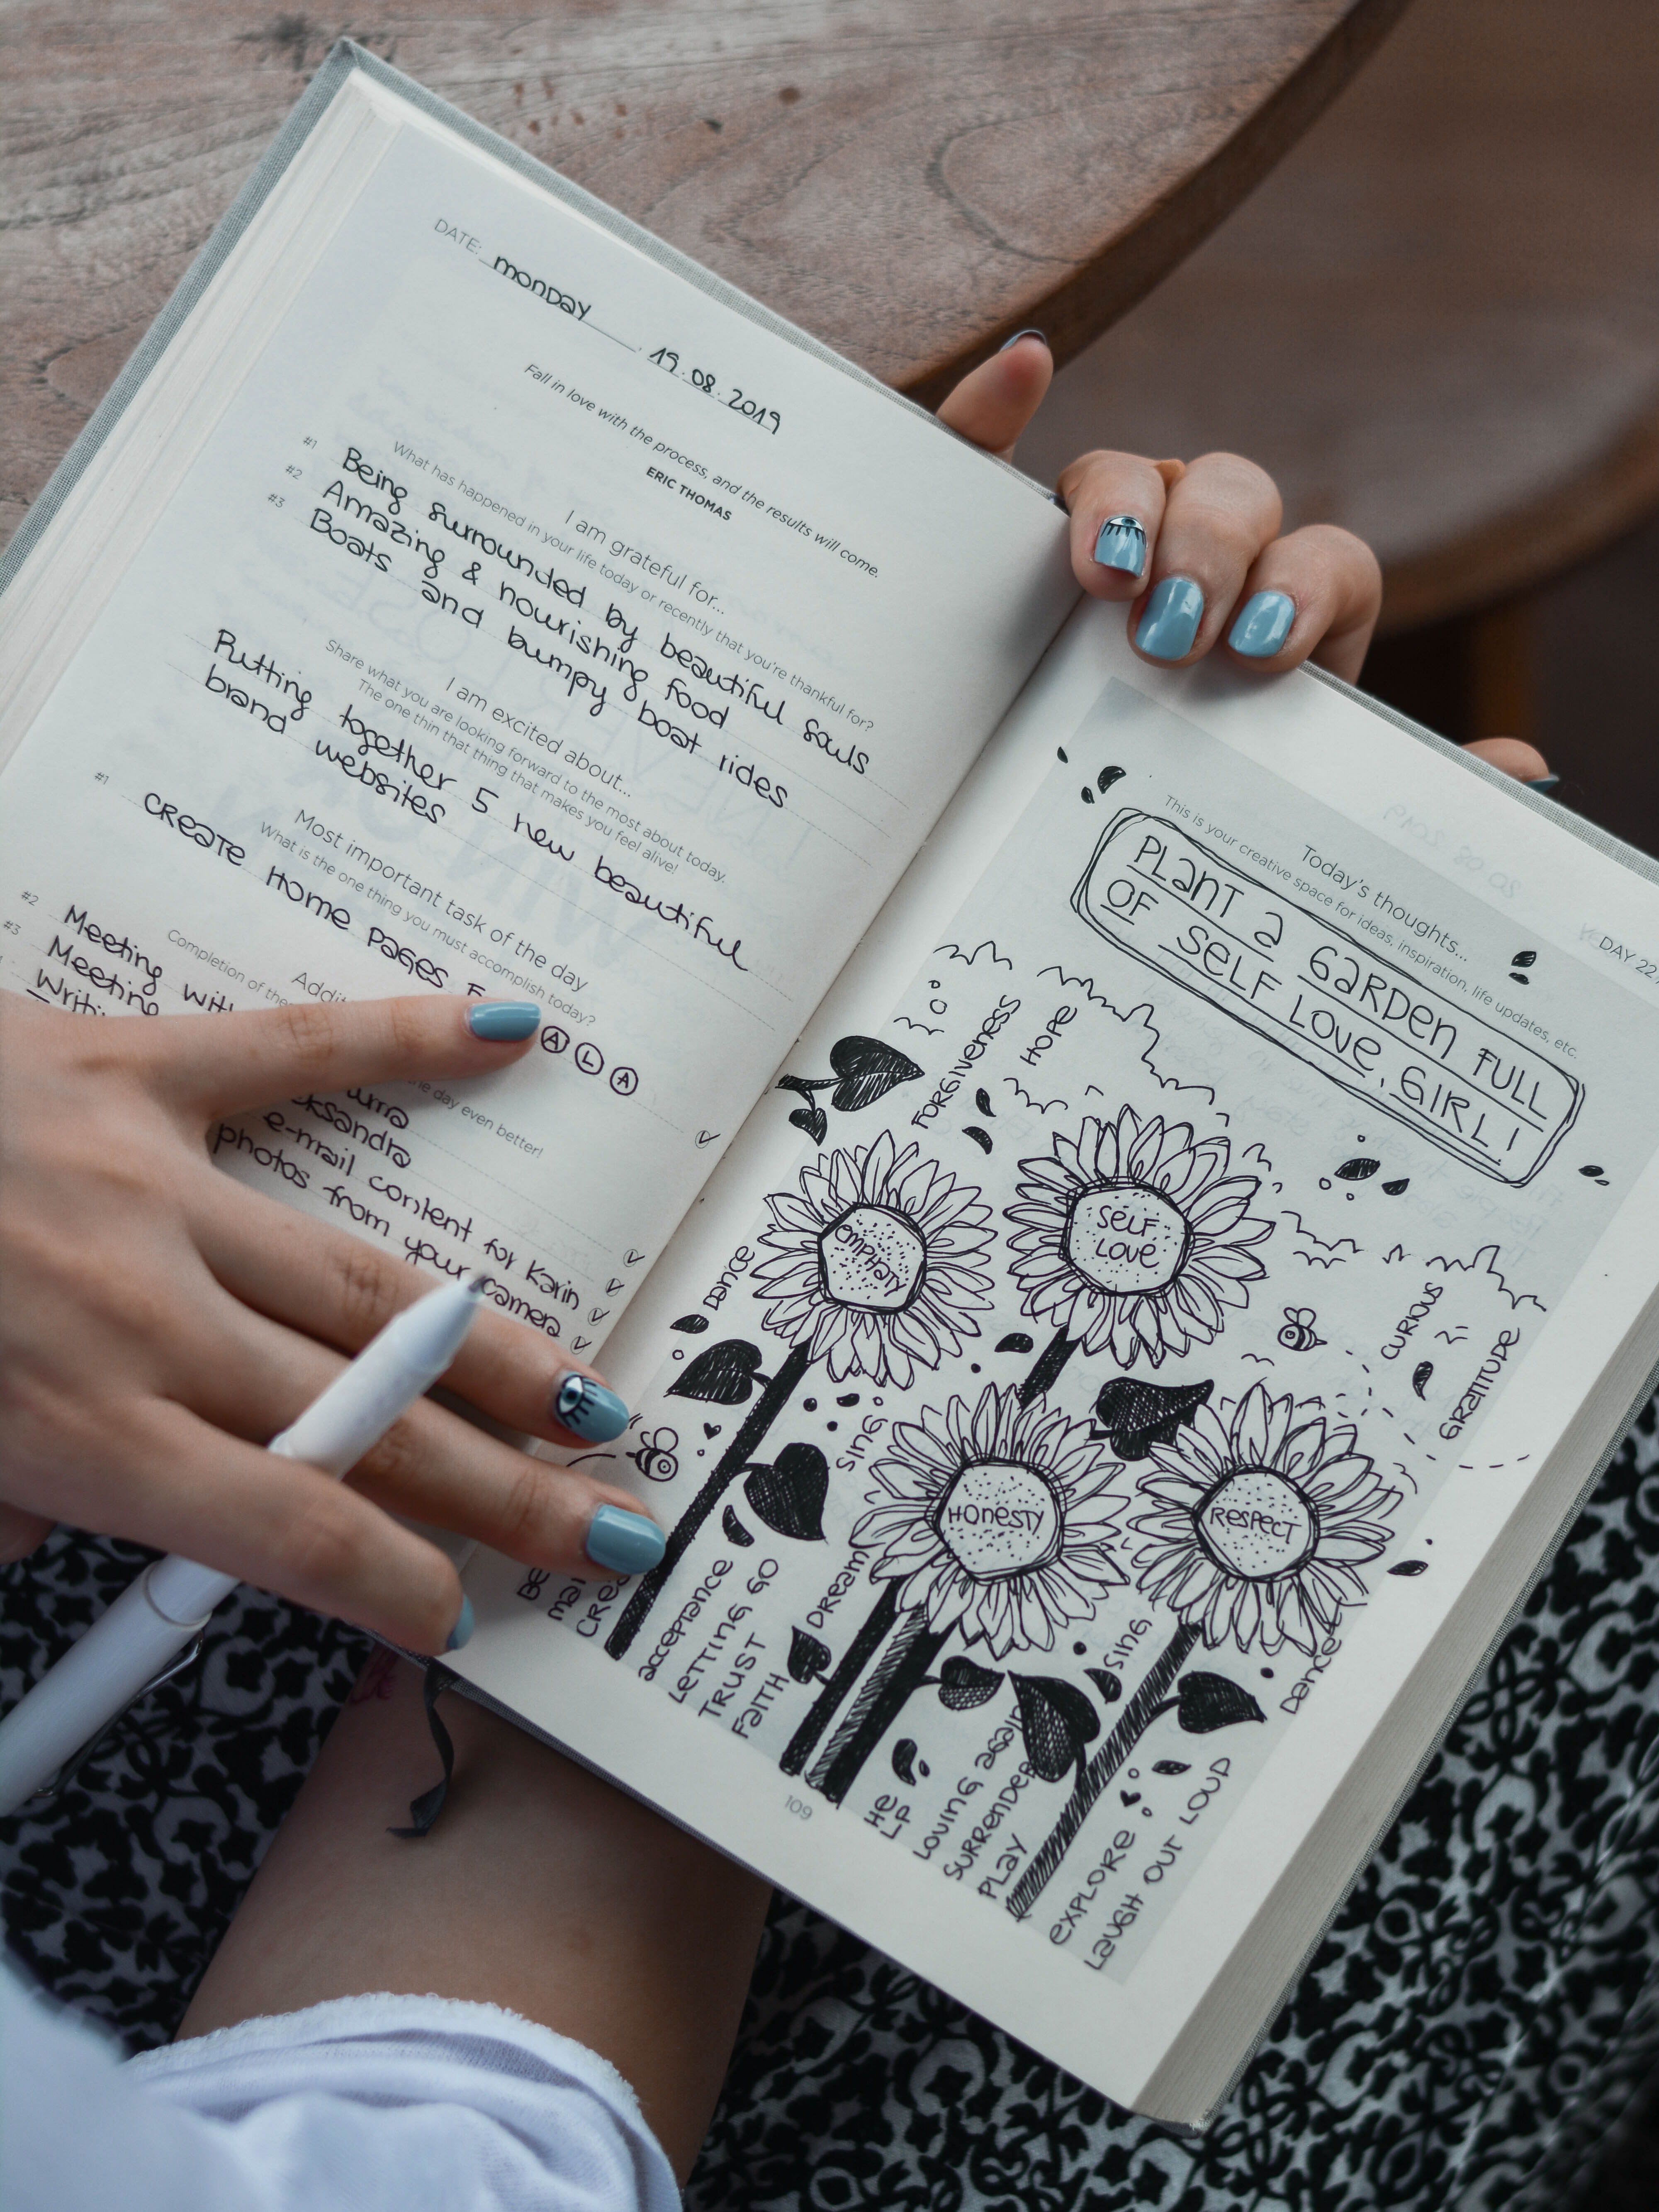 DATE: monday 19.08.2019
Fall in love with the process, and the results will come.
ERIC THOMAS
I am grateful for...
What has happened in your life today or recently that you're thankful for?
#1 Being surrounded by beautiful souls
#2 Amazing & nourishing food
#3 Boats and bumpy boat rides
I am excited about...
Share what you are looking forward to the most about today.
The one thin that thing that makes you feel alive!
Putting together 5 new beautiful
brand websites
Most important task of the day
What is the one thing you must accomplish today?
#1 CREATE HOME PAGES
A L A
Completion of
the day even better!
#2 Meeting
#3 Meeting
e-mail content for Karin
photos from your camera
109
DAY 22
Today's thoughts...
This is your creative space for ideas, inspiration, life updates, etc.
PLANT A GARDEN FULL
OF SELF LOVE, GIRL!
FORGIVENESS
HOPE
EMPHATY
SELF
LOVE
DANCE
CURIOUS
GRATITUDE
SING
HONESTY
RESPECT
ACCEPTANCE
LETTING GO
TRUST
FAITH
DREAM
SING
DANCE
HE
LP
LOVING AGAIN
SURRENDER
PLAY
EXPLORE
LAUGH OUT LOUD